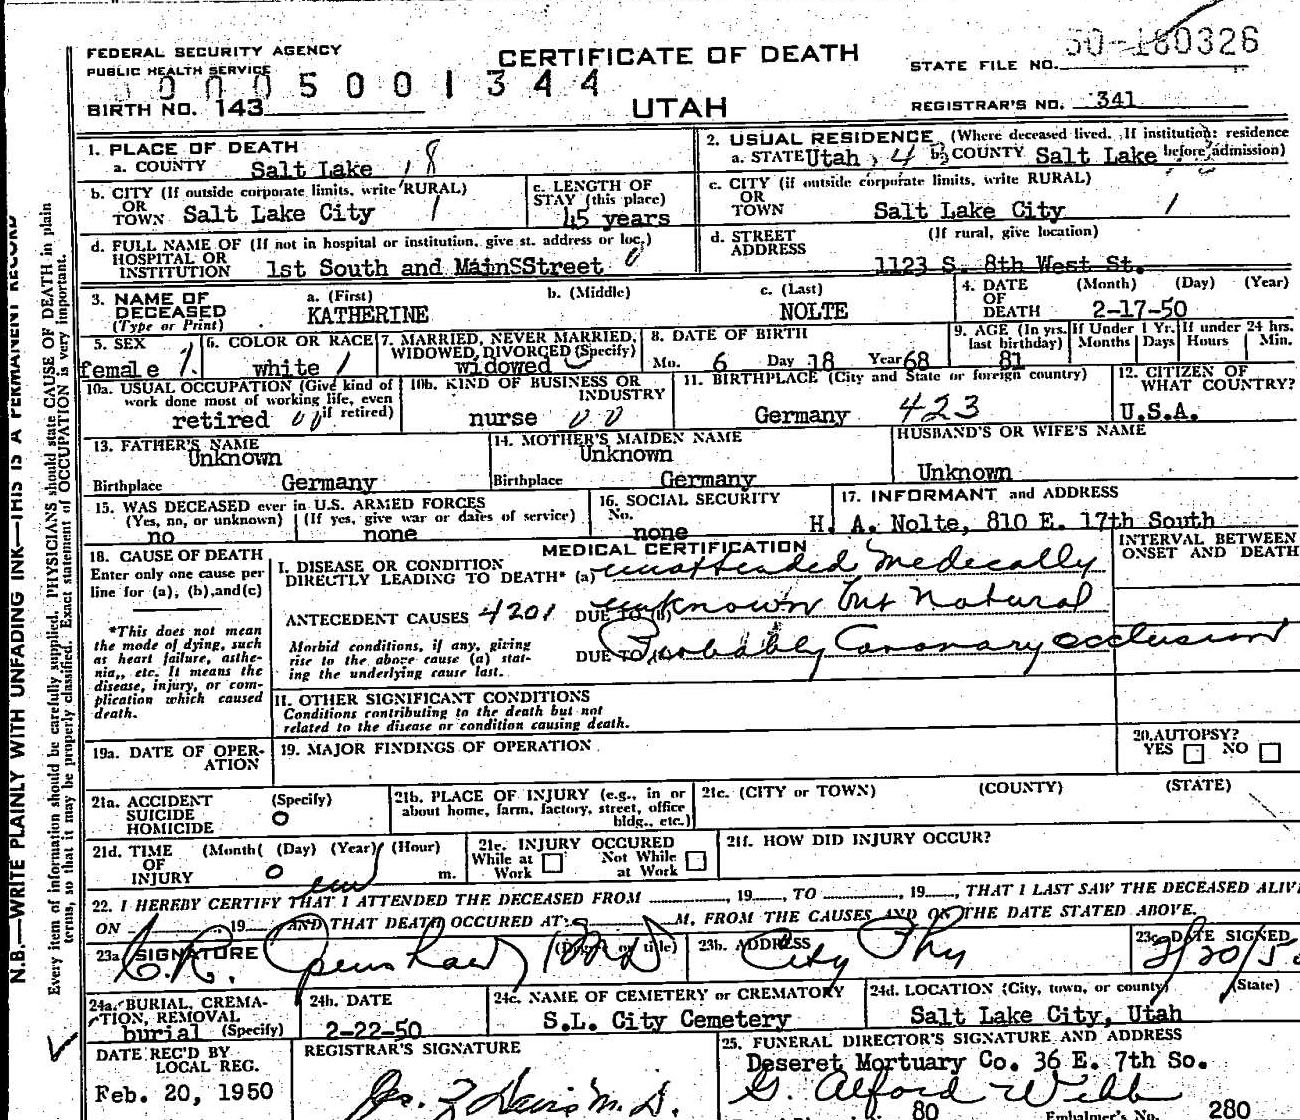 FEDERAL SECURITY AGENCY
PUBLIC HEALTH SERVICE
CERTIFICATE OF DEATH
STATE FILE NO. 50-180326
0005001344
BIRTH NO. 143
UTAH
REGISTRAR'S NO. 341
1. PLACE OF DEATH
a. COUNTY Salt Lake 18
2. USUAL RESIDENCE (Where deceased lived. If institution: residence before admission)
a. STATE Utah 4 b. COUNTY Salt Lake
b. CITY (If outside corporate limits, write RURAL)
OR TOWN Salt Lake City 1
c. LENGTH OF STAY (this place)
45 years
c. CITY (if outside corporate limits, write RURAL)
OR TOWN Salt Lake City 1
d. FULL NAME OF (If not in hospital or institution, give st. address or loc.)
HOSPITAL OR INSTITUTION 1st South and MainSStreet 0
d. STREET ADDRESS (If rural, give location)
1123 S. 8th West St.
3. NAME OF DECEASED (Type or Print)
a. (First) KATHERINE
b. (Middle)
c. (Last) NOLTE
4. DATE OF DEATH (Month) (Day) (Year)
2-17-50
5. SEX
female 1.
6. COLOR OR RACE
white 1
7. MARRIED, NEVER MARRIED, WIDOWED, DIVORCED (Specify)
widowed
8. DATE OF BIRTH
Mo. 6 Day 18 Year 68
9. AGE (In yrs. last birthday)
81
If Under 1 Yr. Months Days
If under 24 hrs. Hours Min.
10a. USUAL OCCUPATION (Give kind of work done most of working life, even if retired)
retired 00
10b. KIND OF BUSINESS OR INDUSTRY
nurse 00
11. BIRTHPLACE (City and State or foreign country)
Germany 423
12. CITIZEN OF WHAT COUNTRY?
U.S.A.
13. FATHER'S NAME
Unknown
Birthplace Germany
14. MOTHER'S MAIDEN NAME
Unknown
Birthplace Germany
HUSBAND'S OR WIFE'S NAME
Unknown
15. WAS DECEASED ever in U.S. ARMED FORCES
(Yes, no, or unknown) (If yes, give war or dates of service)
no none
16. SOCIAL SECURITY No.
none
17. INFORMANT and ADDRESS
H. A. Nolte, 810 E. 17th South
18. CAUSE OF DEATH
Enter only one cause per line for (a), (b), and (c)
*This does not mean the mode of dying, such as heart failure, asthenia, etc. It means the disease, injury, or complication which caused death.
MEDICAL CERTIFICATION
INTERVAL BETWEEN ONSET AND DEATH
I. DISEASE OR CONDITION DIRECTLY LEADING TO DEATH* (a) unattended medically
ANTECEDENT CAUSES 4201 DUE TO (b) unknown but natural
Morbid conditions, if any, giving rise to the above cause (a) stating the underlying cause last.
DUE TO Probably Coronary occlusion
II. OTHER SIGNIFICANT CONDITIONS
Conditions contributing to the death but not related to the disease or condition causing death.
19a. DATE OF OPERATION
19. MAJOR FINDINGS OF OPERATION
20. AUTOPSY?
YES NO
21a. ACCIDENT SUICIDE HOMICIDE (Specify)
0
21b. PLACE OF INJURY (e.g., in or about home, farm, factory, street, office bldg., etc.)
21c. (CITY OR TOWN) (COUNTY) (STATE)
21d. TIME OF INJURY (Month) (Day) (Year) (Hour) m.
0
21e. INJURY OCCURED
While at Work Not While at Work
21f. HOW DID INJURY OCCUR?
22. I HEREBY CERTIFY THAT I ATTENDED THE DECEASED FROM , 19 , TO , 19 , THAT I LAST SAW THE DECEASED ALIVE
ON , 19 AND THAT DEATH OCCURED AT M. FROM THE CAUSES AND ON THE DATE STATED ABOVE.
23a. SIGNATURE (Degree or title)
C.R. Openshaw MD
23b. ADDRESS
City Phy
23c. DATE SIGNED
2/20/50
24a. BURIAL, CREMATION, REMOVAL (Specify)
burial
24b. DATE
2-22-50
24c. NAME OF CEMETERY or CREMATORY
S.L. City Cemetery
24d. LOCATION (City, town, or county) (State)
Salt Lake City, Utah
DATE REC'D BY LOCAL REG.
Feb. 20, 1950
REGISTRAR'S SIGNATURE
25. FUNERAL DIRECTOR'S SIGNATURE AND ADDRESS
Deseret Mortuary Co. 36 E. 7th So.
G. Alford Webb
80 Embalmer's No. 280
N.B.—WRITE PLAINLY WITH UNFADING INK—THIS IS A PERMANENT RECORD
Every item of information should be carefully supplied. PHYSICIANS should state CAUSE OF DEATH in plain
terms, so that it may be properly classified. Exact statement of OCCUPATION is very important.